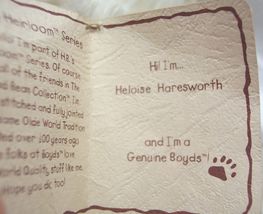 Heirloom™ Series
I'm part of H.B.'s
Series. Of course
all of the friends in The
Bean Collection™, I'm
stitched and fully jointed
same Olde World Tradition
ted over 100 years ago
folks at Boyds™ love
World Quality stuff like me.
Hope you do too!
Hi! I'm...
Heloise Haresworth
and I'm a
Genuine Boyds™!